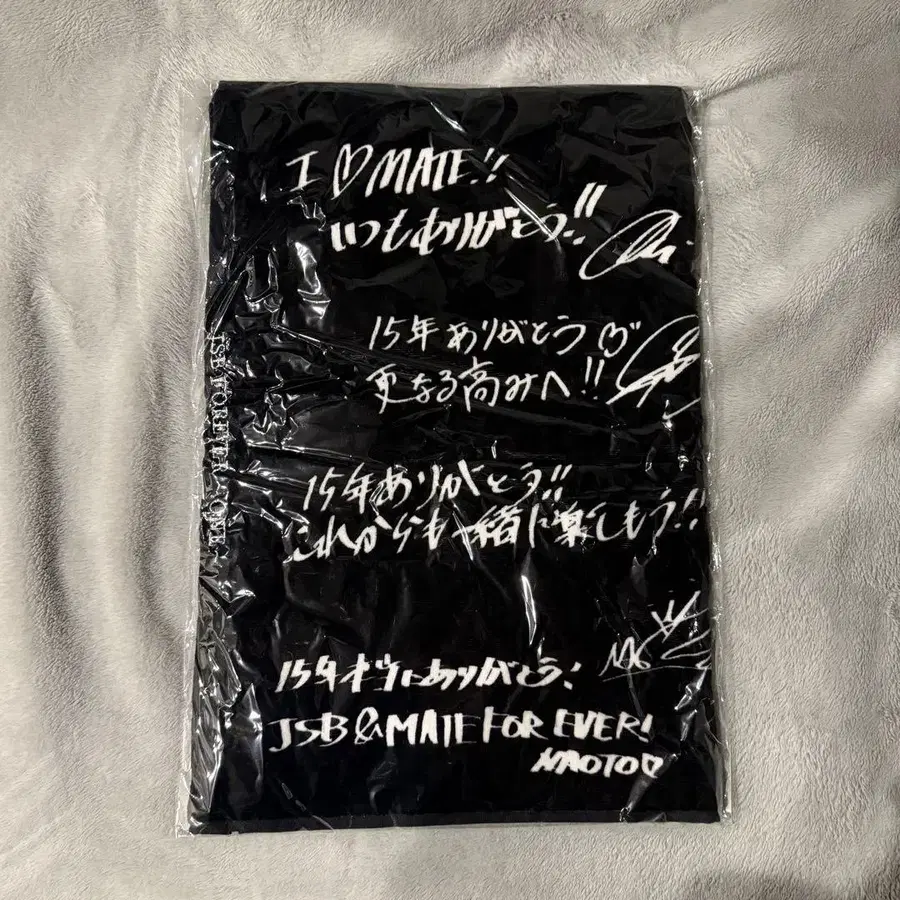 I ♡ MATE!!
いつもありがとう!!
15年ありがとう♡
更なる高みへ!!
15年ありがとう!!
これからも一緒に楽しもう!!
15年本当にありがとう!
JSB & MATE FOR EVER!
NAOTO♡
JSB FOREVER